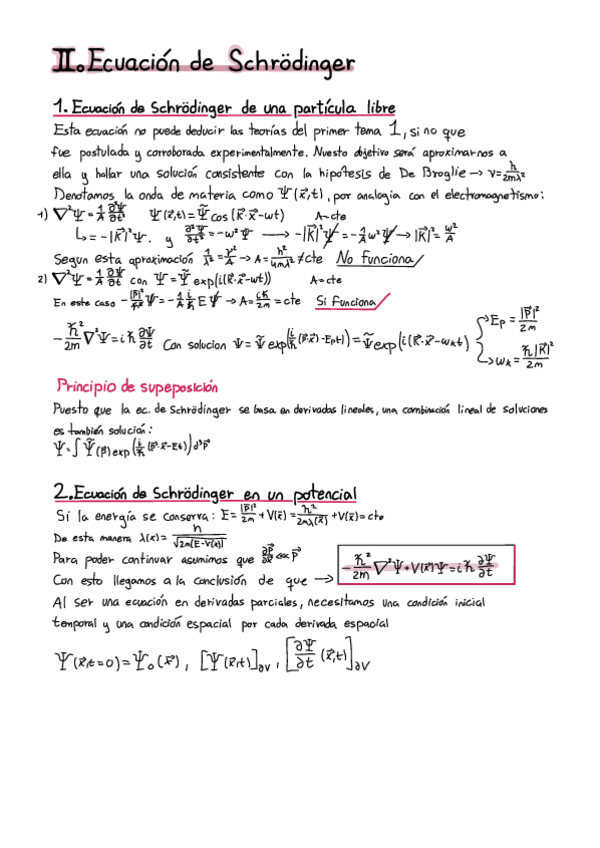 II. Ecuación de Schrödinger
1. Ecuación de Schrödinger de una partícula libre
Esta ecuación no puede deducir las teorías del primer tema 1, si no que
fue postulada y corroborada experimentalmente. Nuesto objetivo será aproximarnos a
ella y hallar una solución consistente con la hipotesis de De Broglie → ν = h/2mλ²
Denotamos la onda de materia como Ψ(x⃗,t), por analogia con el electromagnetismo:
1) ∇²Ψ = 1/A ∂²Ψ/∂t² Ψ(x⃗,t) = Ψ̃ cos(K⃗·x⃗-wt) A-cte
↳ = -|K⃗|²Ψ. y ∂²Ψ/∂t² = -w²Ψ → -|K⃗|²Ψ = -1/A w²Ψ → |K⃗|² = w²/A
Segun esta aproximación 1/λ² = ν²/A → A = h²/4mλ² ≠ cte No funciona
2) ∇²Ψ = 1/A ∂Ψ/∂t con Ψ = Ψ̃ exp(i(K⃗·x⃗-wt)) A=cte
En este caso -|p⃗|²/ℏ² Ψ = -1/A i/ℏ E Ψ → A = iℏ/2m = cte Si funciona
-ℏ²/2m ∇²Ψ = iℏ ∂Ψ/∂t Con solucion Ψ = Ψ̃ exp(i/ℏ (p⃗·x⃗) - Ept)) = Ψ̃ exp(i(K⃗·x⃗-wₖt)
Ep = |p⃗|²/2m
wₖ = ℏ|K⃗|²/2m
Principio de supeposición
Puesto que la ec. de Schrödinger se basa en derivadas lineales, una combinación lineal de soluciones
es también solución:
Ψ = ∫ Ψ̃(p⃗) exp(i/ℏ (p⃗·x⃗-Et)) d³p⃗
2. Ecuación de Schrödinger en un potencial
Si la energía se conserva: E = |p⃗|²/2m + V(x⃗) = h²/2mλ(x⃗) + V(x⃗) = cte
De esta manera λ(x) = h/√2m[E-V(x)]
Para poder continuar asumimos que ∂p⃗/∂x⃗ <<< p⃗
Con esto llegamos a la conclusión de que → -ℏ²/2m ∇²Ψ + V(x⃗)Ψ = iℏ ∂Ψ/∂t
Al ser una ecuación en derivadas parciales, necesitamos una condición inicial
temporal y una condición espacial por cada derivada espacial
Ψ(x⃗,t=0) = Ψ₀(x⃗), [Ψ(x⃗,t)]∂V, [∂Ψ/∂t (x⃗,t)]∂V